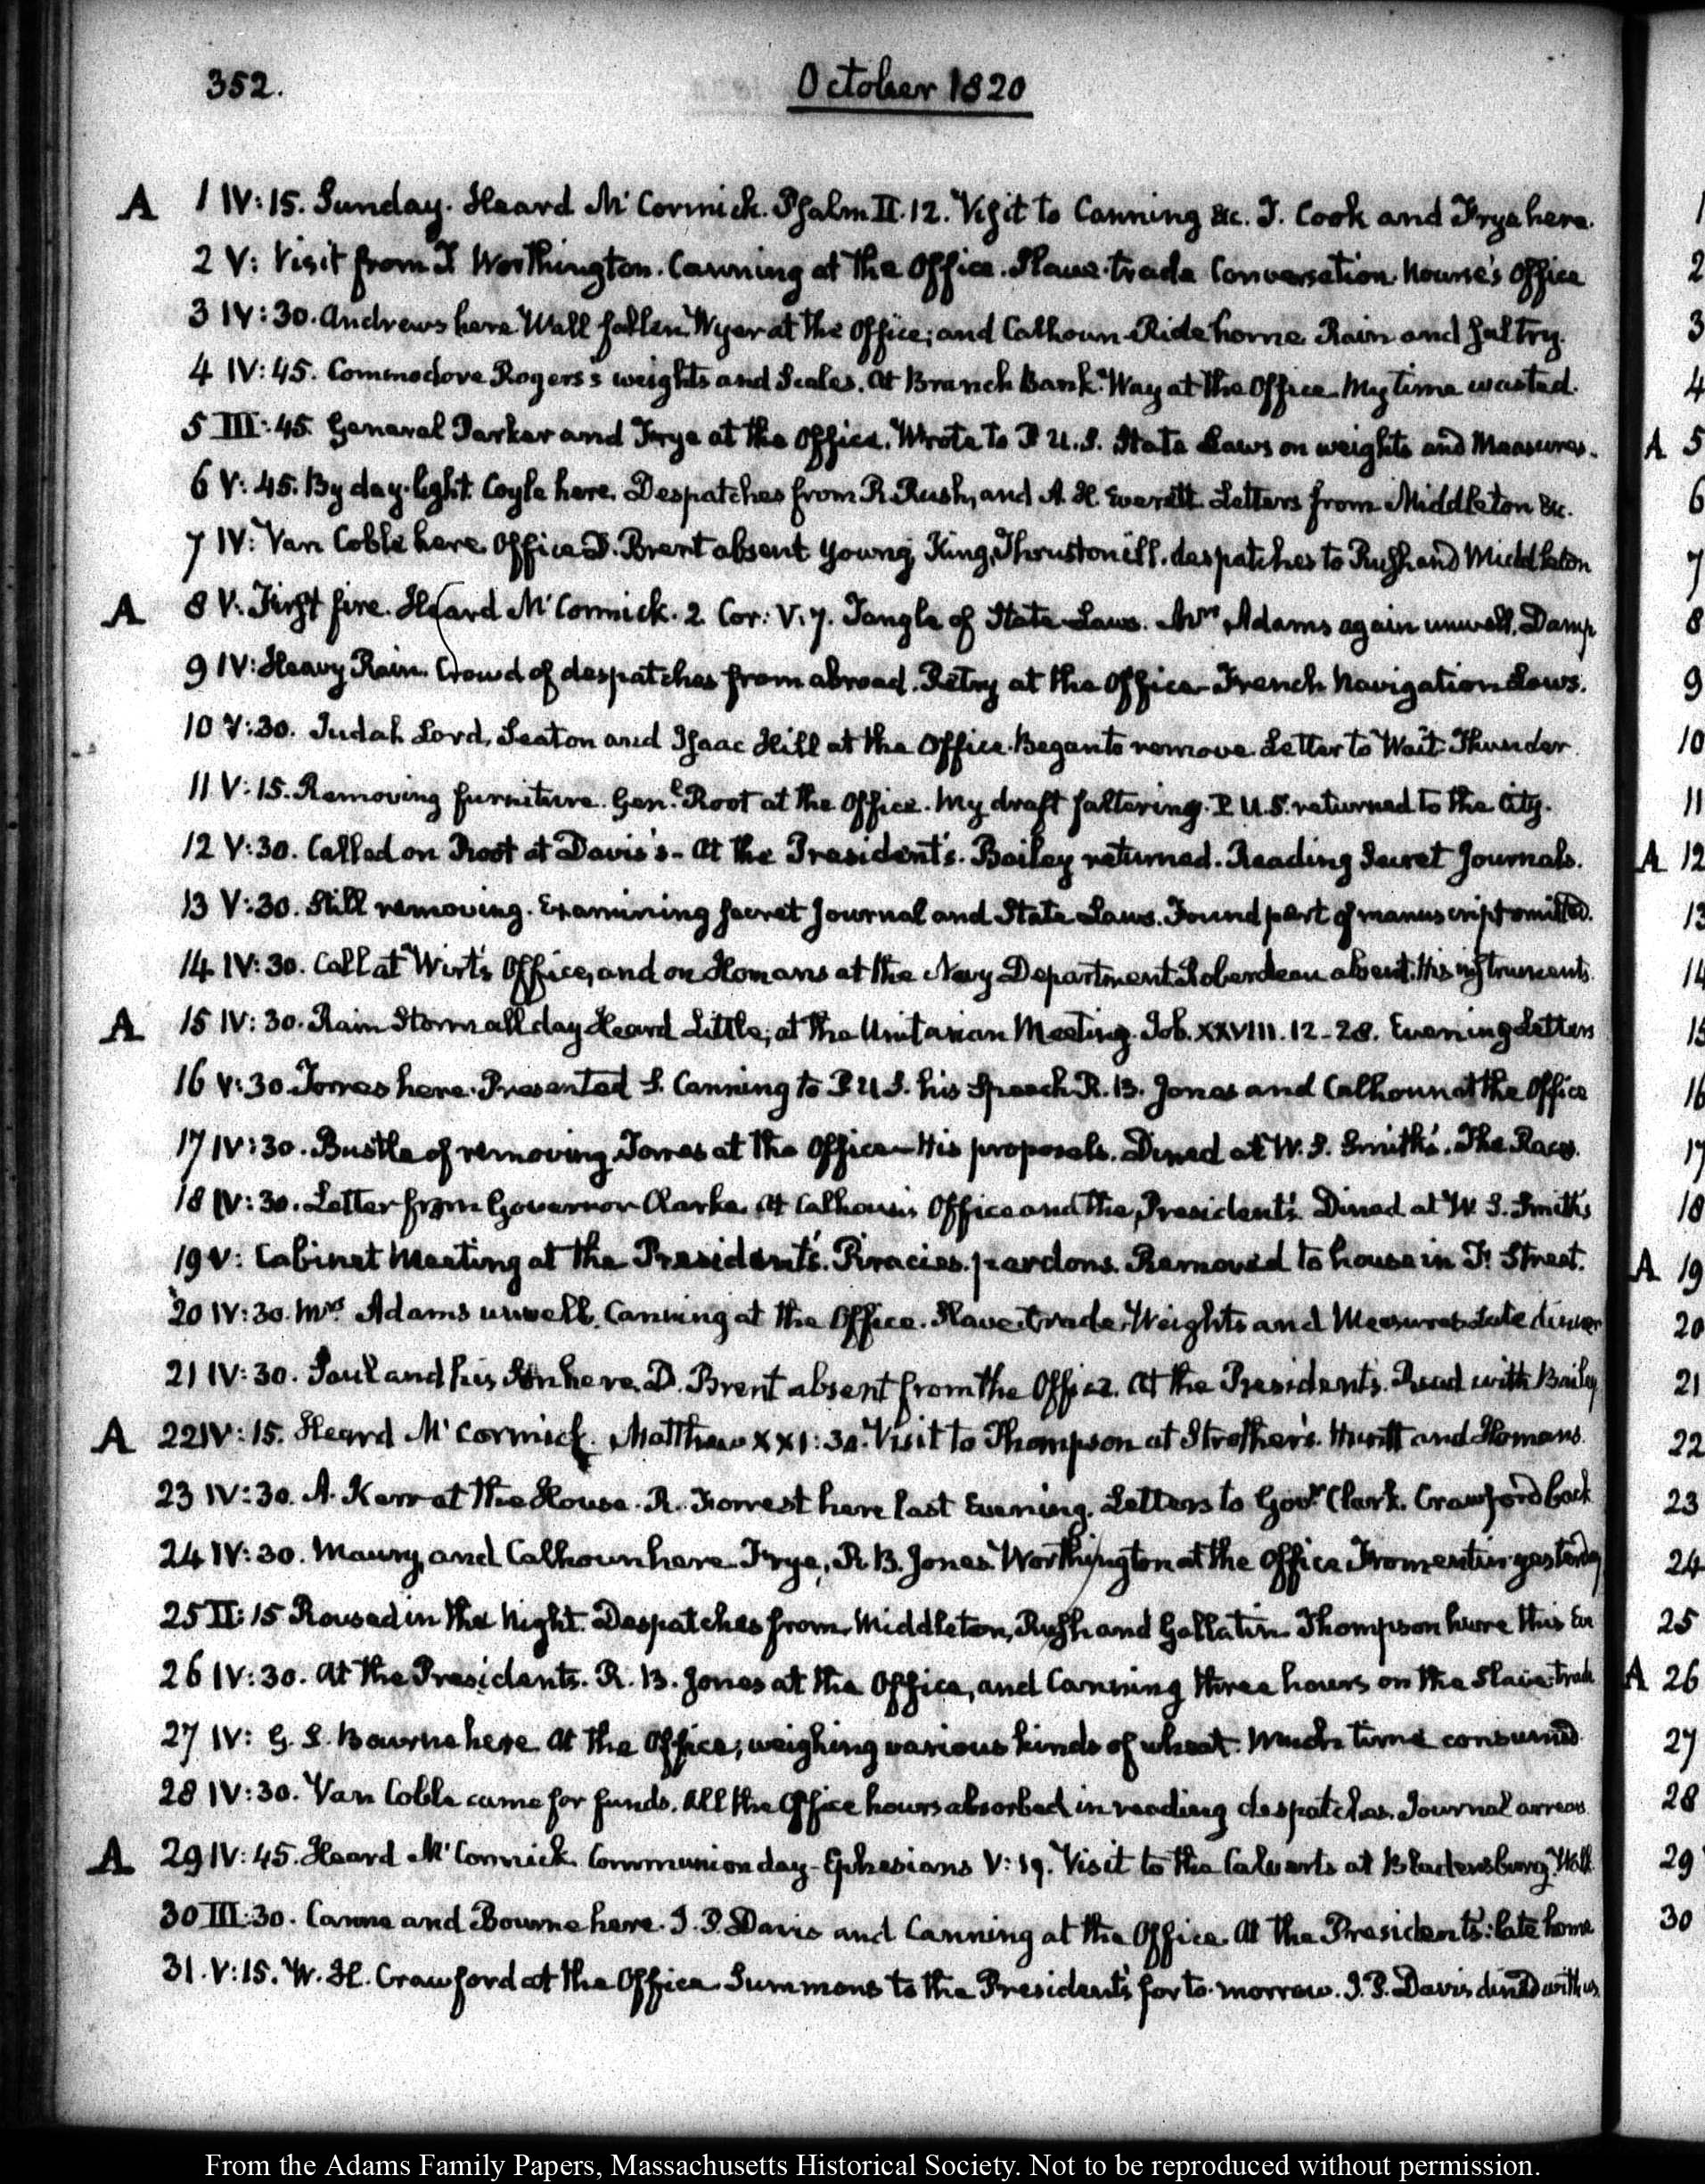 352.
October 1820
A 1 IV:15. Sunday. Heard McCormick. Psalm II.12. Visit to Canning &c. J. Cook and Frye here.
2 V: Visit from T Worthington. Canning at the Office. Slave-trade Conversation. Nourse's Office
3 IV:30. Andrews here Wall fallen. Wyer at the Office; and Calhoun. Ride home Rain and sultry.
4 IV:45. Commodore Rogers's weights and Scales. At Branch Bank. Way at the Office. My time wasted.
5 III:45. General Parker and Frye at the Office. Wrote to P U.S. State Laws on weights and Measures.
6 V:45. By day-light. Coyle here. Despatches from R. Rush, and A. H. Everett. Letters from Middleton &c.
7 IV: Van Coble here. Office D. Brent absent. Young, King, Thruston ill. despatches to Rush and Middleton
A 8 V. First fire. Heard McCormick. 2 Cor: V.7. Tangle of State-Laws. Mrs. Adams again unwell. Damp
9 IV: Heavy Rain. Crowd of despatches from abroad. Petry at the Office—French Navigation Laws.
10 V:30. Judah Lord, Seaton and Isaac Hill at the Office. Began to remove. Letter to Wait. Thunder
11 V:15. Removing furniture. Genl. Root at the Office. My draft faltering. P. U.S. returned to the City.
12 V:30. Called on Root at Davis's—At the President's. Bailey returned. Reading Secret Journals.
13 V:30. Still removing. Examining secret Journal and State Laws. Found part of manuscript omitted.
14 IV:30. Call at Wirt's Office, and on Homans at the Navy Department. Roberdeau absent. His instruments.
A 15 IV:30. Rain Storm all day Heard Little; at the Unitarian Meeting. Job. XXVIII. 12-28. Evening Letters
16 V:30 Torres here. Presented S. Canning to P. U S. his Speech. R. B. Jones and Calhoun at the Office
17 IV:30. Bustle of removing. Torres at the Office—His proposals. Dined at W. S. Smith's. The Races.
18 IV:30. Letter from Governor Clarke. At Calhoun's Office and the President's. Dined at W. S. Smith's
19 V: Cabinet Meeting at the President's. Piracies. pardons. Removed to house in F. Street.
20 IV:30. Mrs. Adams unwell. Canning at the Office. Slave-trade. Weights and Measures. Late dinner
21 IV:30. Paul and his Son here. D. Brent absent from the Office. At the President's. Read with Bailey
A 22 IV:15. Heard McCormick. Matthew XXI:30. Visit to Thompson at Strother's. and Homans.
23 IV:30. A. Kerr at the House. R. Forrest here last Evening. Letters to Govr. Clark. Crawford back
24 IV:30. Maury, and Calhoun here. Frye, R. B. Jones. Worthington at the Office Fromentin yesterday
25 II:15 Roused in the Night. Despatches from Middleton, Rush and Gallatin. Thompson here this Eve
26 IV:30. At the Presidents. R. B. Jones at the Office, and Canning three hours on the Slave-trade
27 IV: G. S. Bourne here. At the Office; weighing various kinds of wheat. Much time consumed
28 IV:30. Van Coble came for funds. All the Office hours absorbed in reading despatches. Journal arrears
A 29 IV:45. Heard McCormick. Communion day—Ephesians V:19. Visit to the Calverts at Bladensburg.
30 III:30. and Bourne here. J. P. Davis and Canning at the Office. At the President's: late home
31. V:15. W. H. Crawford at the Office. Summons to the President's for to-morrow. J. P. Davis dined with us
1
2
3
4
A 5
6
7
8
9
10
11
A 12
13
14
15
16
17
18
A 19
20
21
22
23
24
25
A 26
27
28
29
30
From the Adams Family Papers, Massachusetts Historical Society. Not to be reproduced without permission.